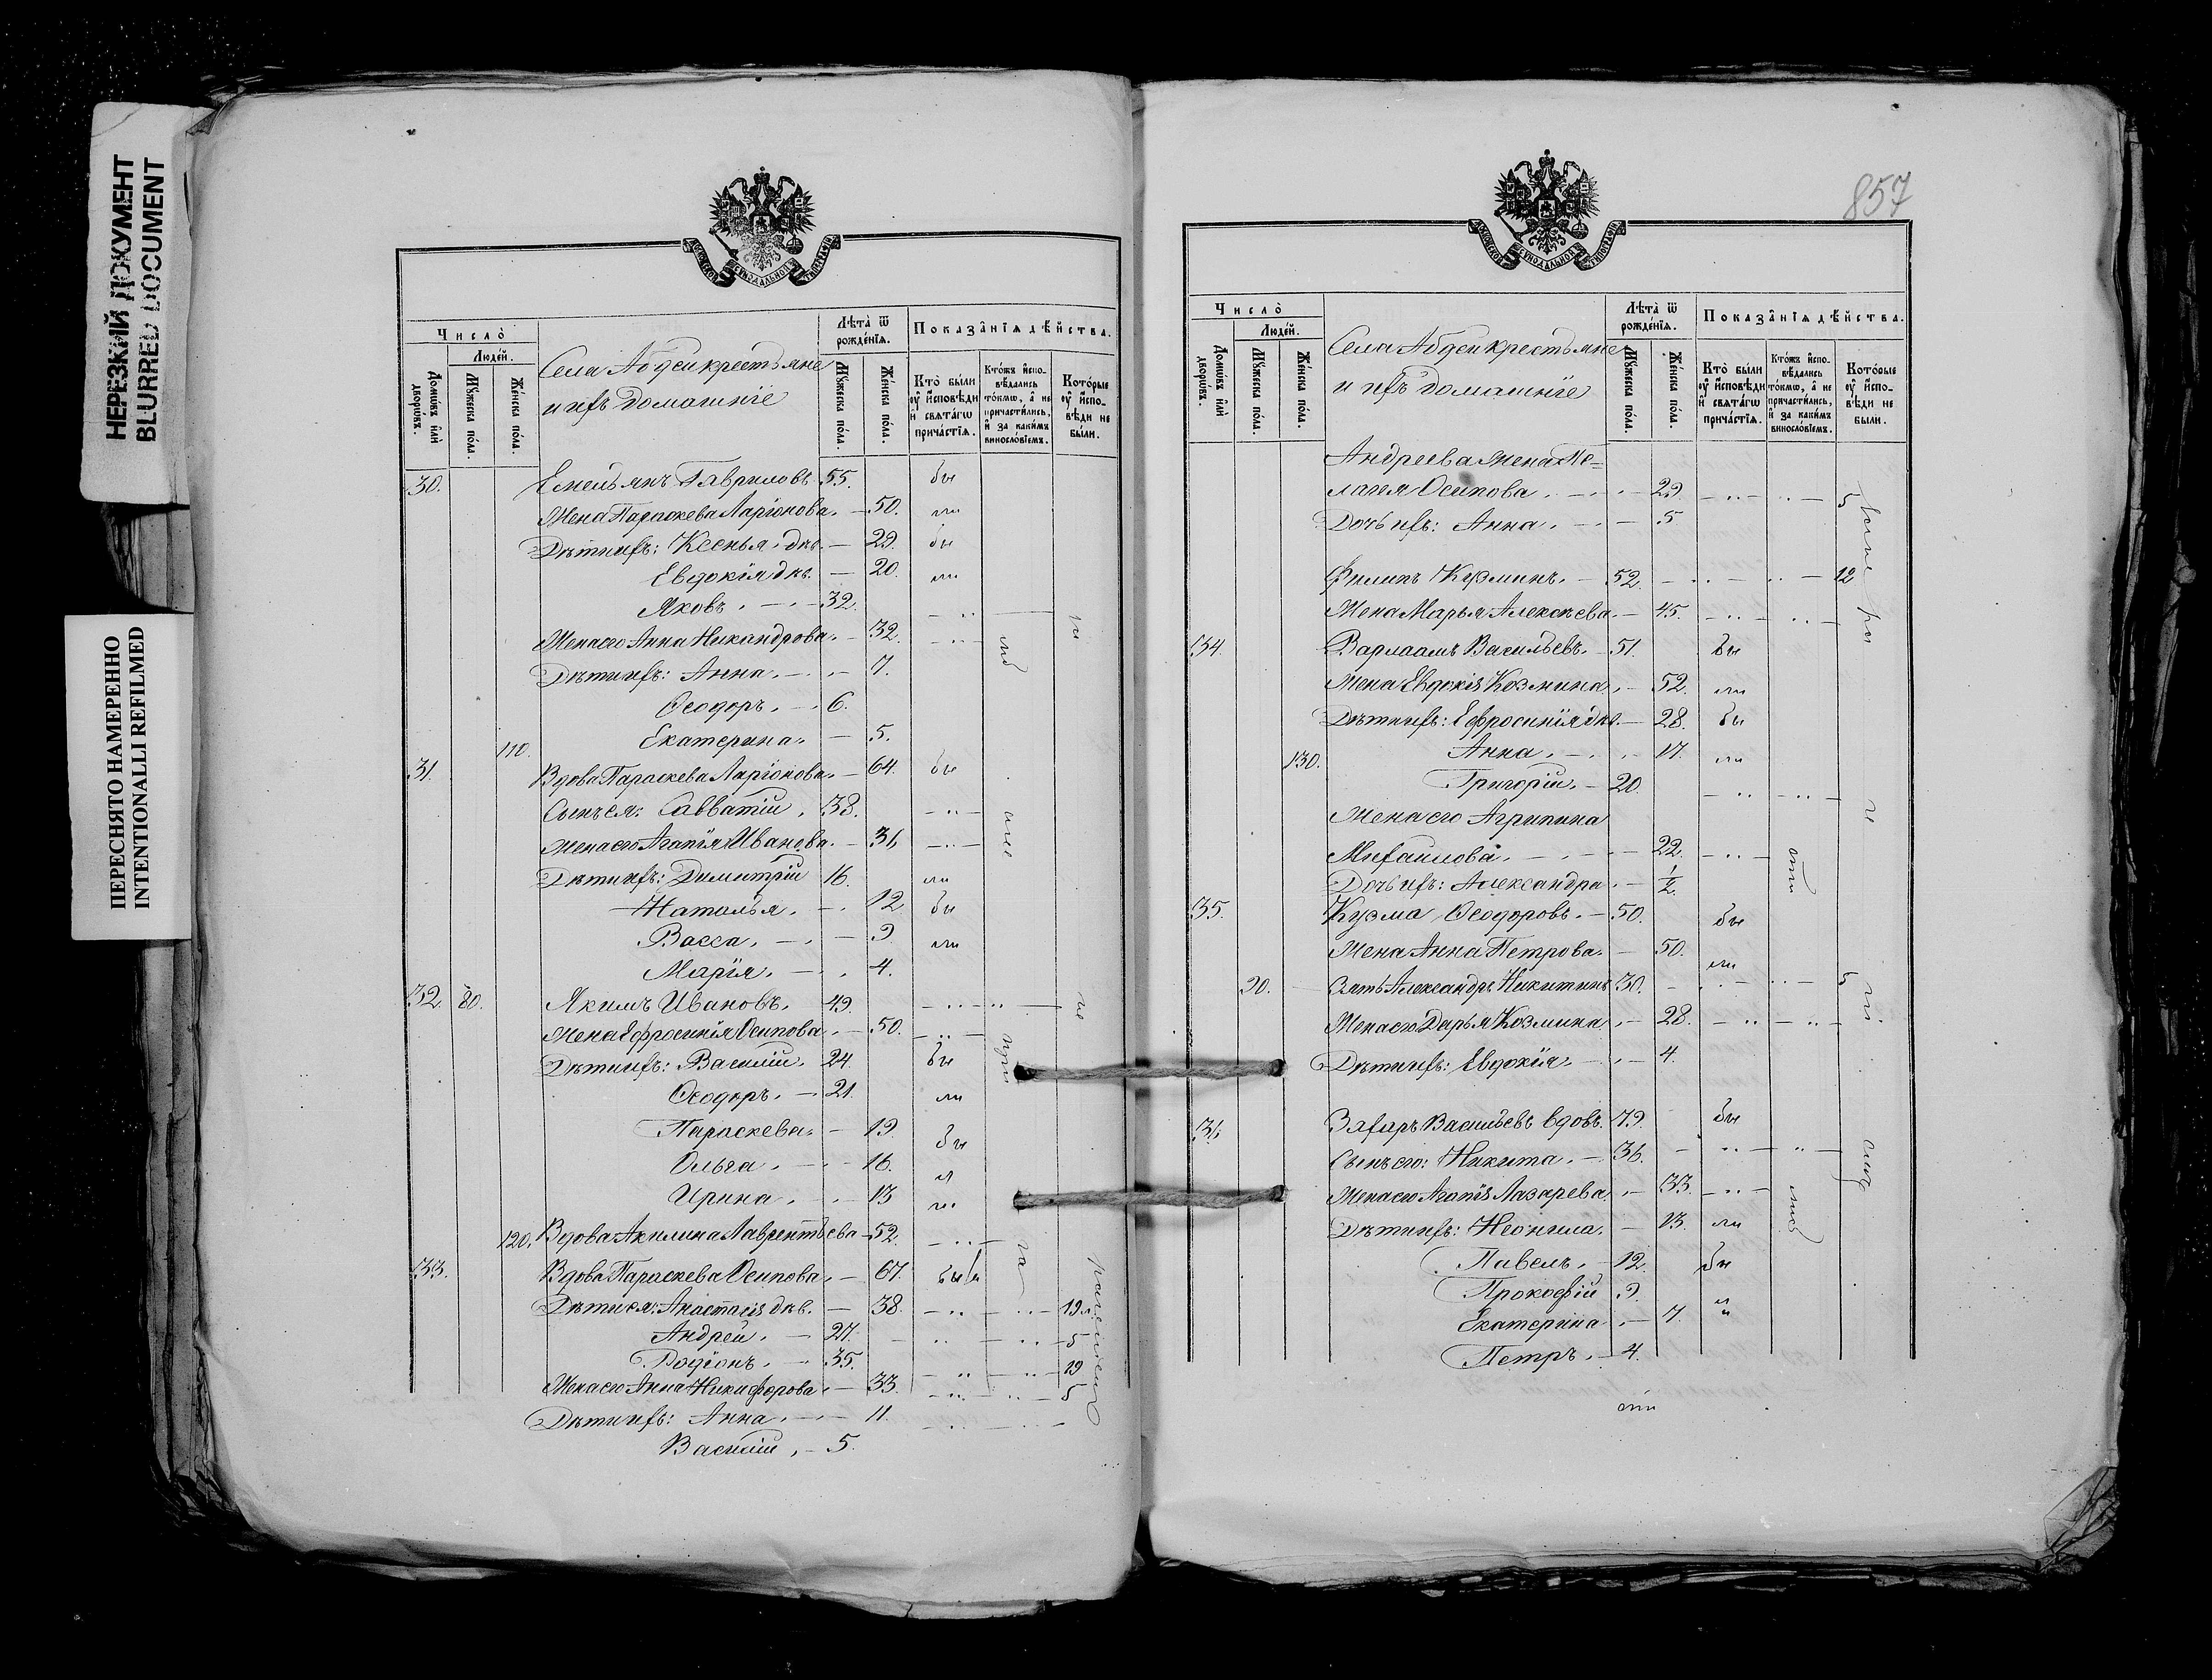 НЕРЕЗКИЙ ДОКУМЕНТ
BLURRED DOCUMENT
ПЕРЕСНЯТО НАМЕРЕННО
INTENTIONALLI REFILMED
Число̀
Людей.
Домовъ или дворовъ.
Мужеска пола.
Женска пола.
Села Абдеи крестьяне
и ихъ домашніе
Лѣта ѿ рожденїя.
Мужеска пола.
Женска пола.
Показанїя дѣйства.
Кто были оу исповѣди и святагѡ причастїя.
Ктожъ исповѣдались токмѡ, а не причастились, и за какимъ винословїемъ.
Которые оу исповѣди не были.
30. Емельянъ Гавриловъ 55. бы
Жена Параскева Ларіонова. – 50. ли
Дѣти ихъ: Ксенья, двк. – 29. бы
Евдокія двк. – 20. ли
Яковъ. – 32.
Жена его Анна Никандрова. – 32.
Дѣти ихъ: Анна. – 7.
Ѳеодоръ. – 6.
110. Екатерина. – 5.
31. Вдова Параскева Ларіонова. – 64. бы
Сынъ ея: Савватій. 38.
Жена его Агапія Иванова. – 36
Дѣти ихъ: Димитрій 16. ли
Наталья. – 12 бы
Васса. – 9. ли
Марія. – 4.
32. 80. Якимъ Ивановъ. 49.
Жена Ефросинія Осипова. – 50.
Дѣти ихъ: Василій. 24. бы
Ѳеодоръ. – 21. ли
Параскева. – 19. бы
Ольга. – 16.
Ирина. – 13
120. Вдова Акилина Лаврентьева – 52.
33. Вдова Параскева Осипова. – 67.
Дѣти ея: Анастасія двк. – 38. 19
Андрей. – 27. 5
Родіонъ. – 35. 19
Жена его Анна Никифорова. – 33. 5
Дѣти ихъ: Анна. – 11.
Василій. – 5.
857
Число̀
Людей.
Домовъ или дворовъ.
Мужеска пола.
Женска пола.
Села Абдеи крестьяне
и ихъ домашніе
Лѣта ѿ рожденїя.
Мужеска пола.
Женска пола.
Показанїя дѣйства.
Кто были оу исповѣди и святагѡ причастїя.
Ктожъ исповѣдались токмѡ, а не причастились, и за какимъ винословїемъ.
Которые оу исповѣди не были.
Андреева жена Пе=
лагея Осипова. – 29. 5
Дочь ихъ: Анна. – 5
Филипъ Кузминъ. – 52. 12
Жена Марья Алексѣева. – 45.
34. Варлаамъ Васильевъ. 51. бы
Жена Евдокія Козмина. – 52. ли
Дѣти ихъ: Ефросинія двк. – 28. бы
130. Анна. – 17. ли
Григорій. – 20.
Жена его Агрипина
Михаилова. – 22.
Дочь ихъ: Александра. – 1/2.
35. Кузма Ѳеодоровъ. – 50. бы
Жена Анна Петрова. – 50. ли
90. Зять Александръ Никитинъ 30. 5
Жена его Дарья Козмина. – 28.
Дѣти ихъ: Евдокія. – 4.
36 Захаръ Васильевъ вдовъ. 79. бы
Сынъ его: Никита. – 36.
Жена его Агапія Лазарева. – 33.
Дѣти ихъ: Неонила. – 13. ли
Павелъ. – 12. бы
Прокофій 9.
Екатерина. – 7.
Петръ. – 4.